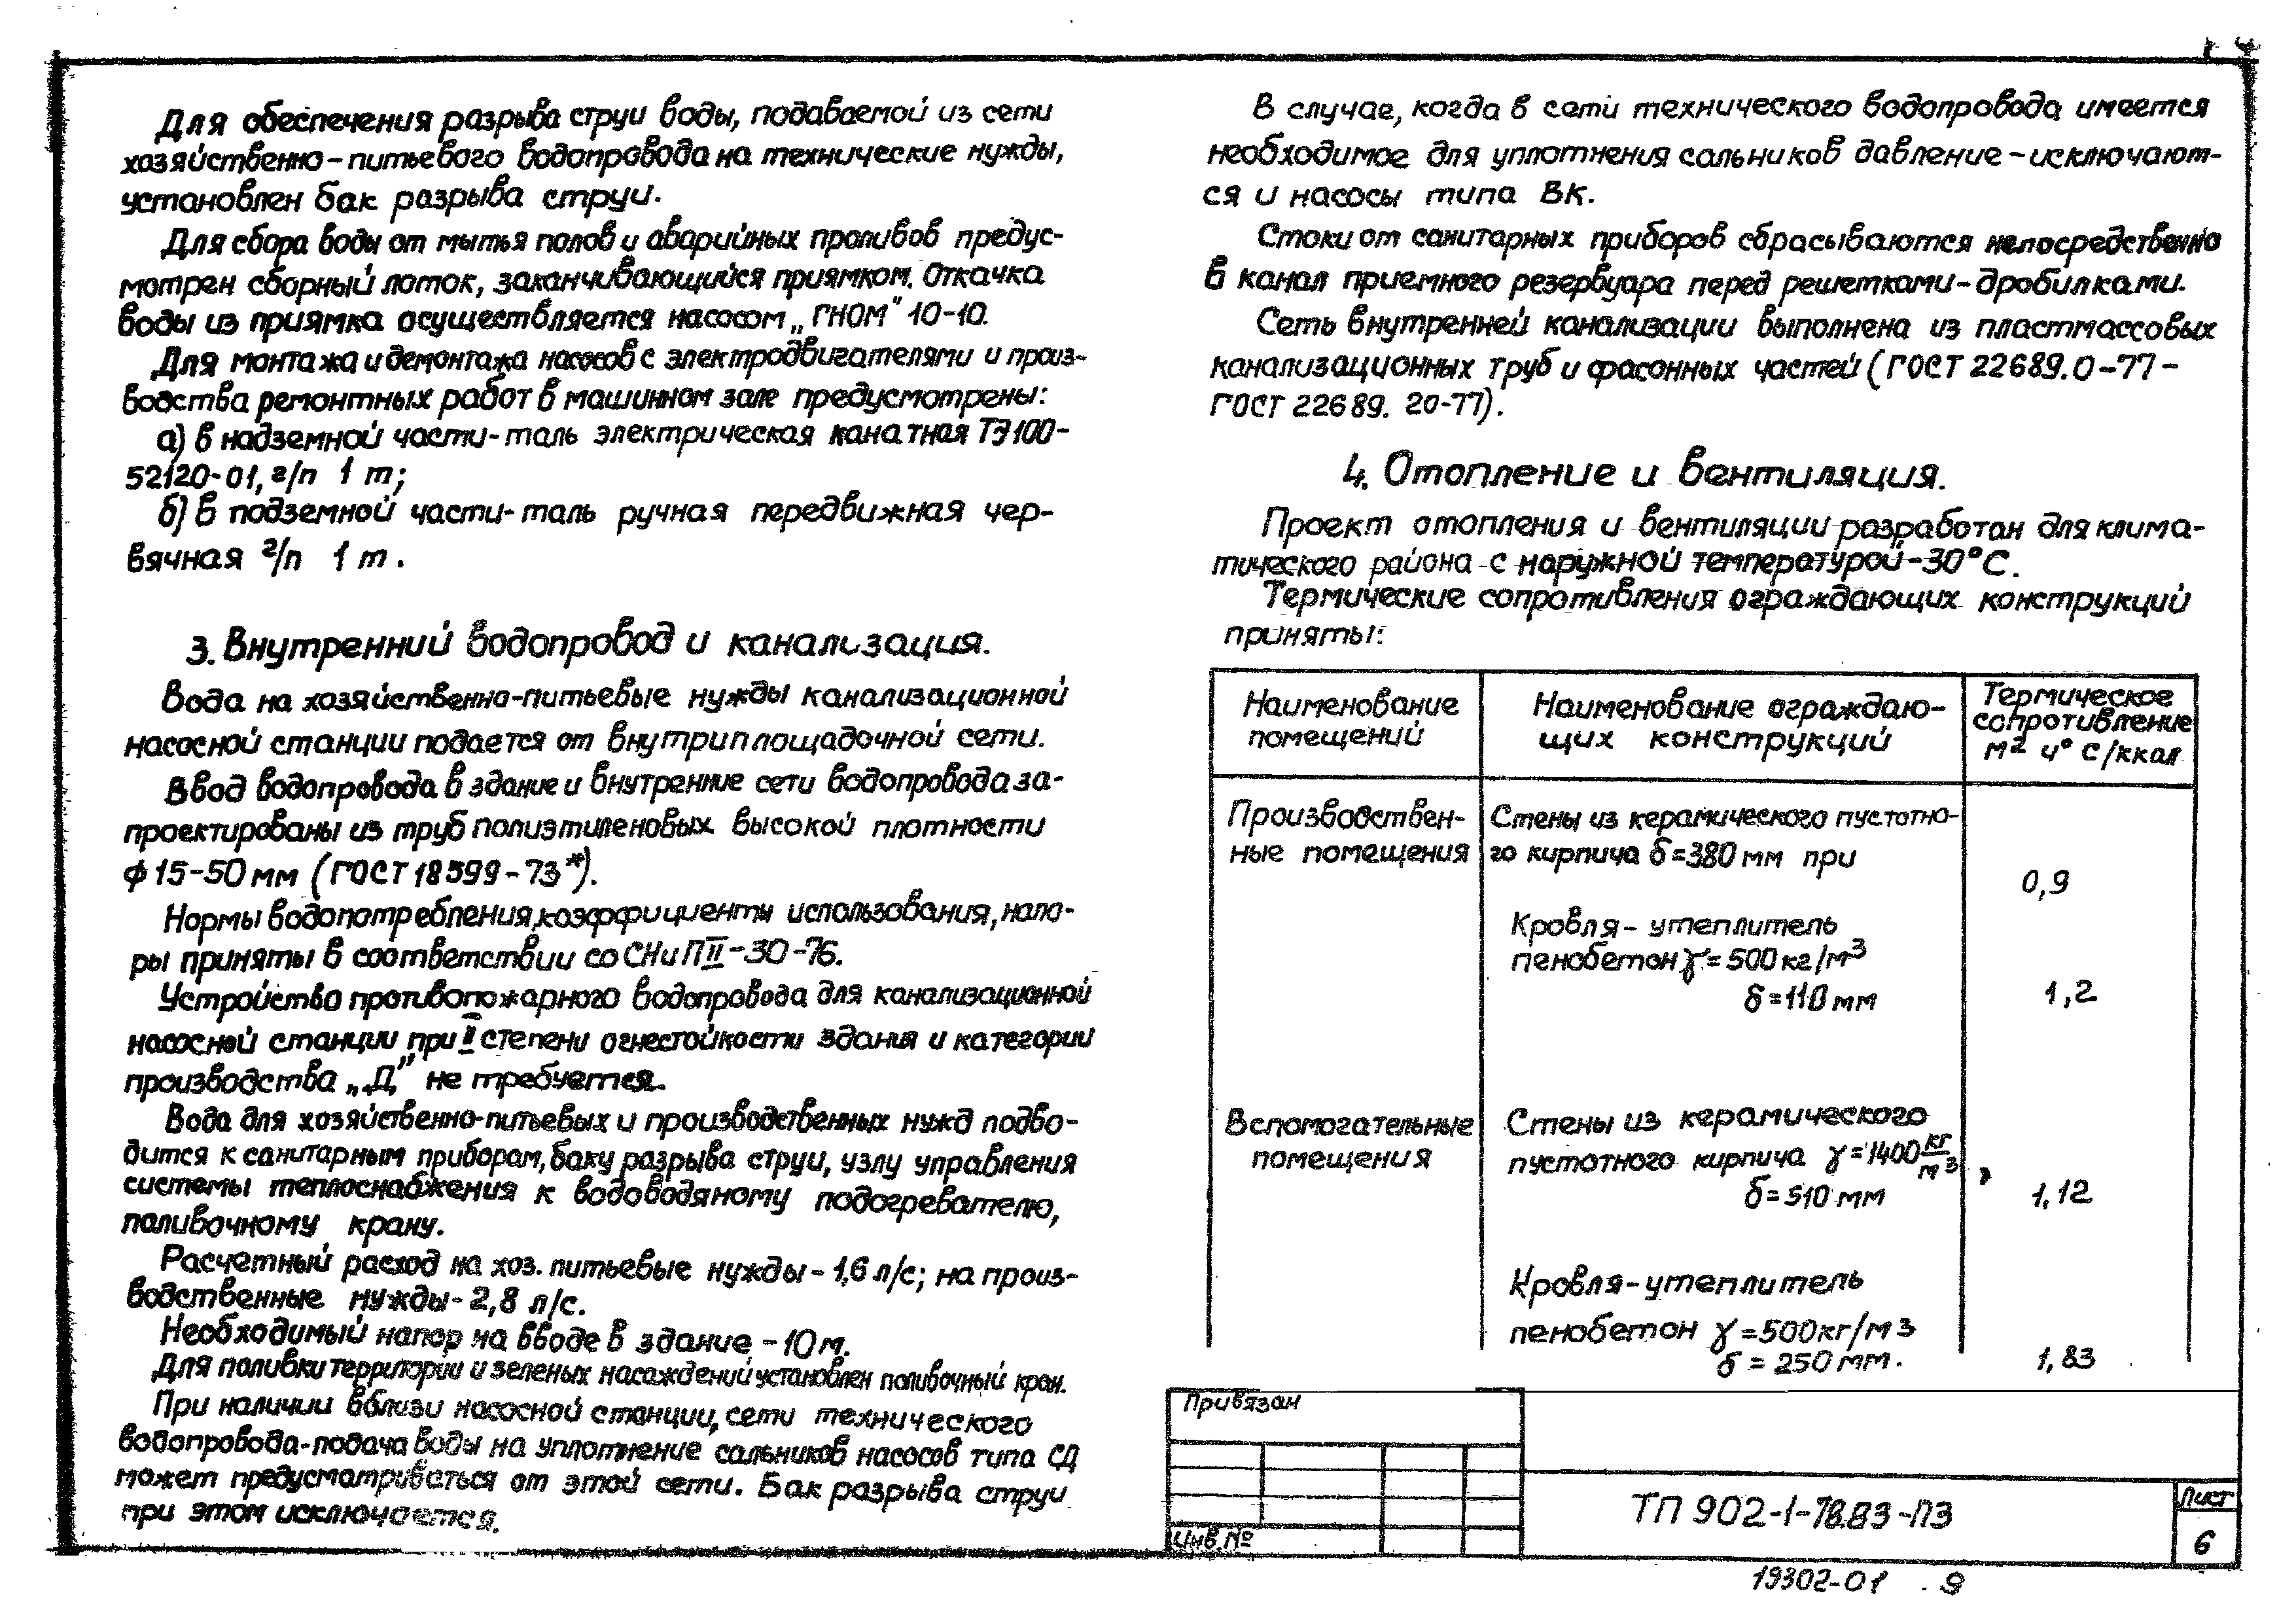 Для обеспечения разрыва струи воды, подаваемой из сети
хозяйственно-питьевого водопровода на технические нужды,
установлен бак разрыва струи.
Для сбора воды от мытья полов и аварийных проливов предус-
мотрен сборный лоток, заканчивающийся приямком. Откачка
воды из приямка осуществляется насосом „ГНОМ" 10-10.
Для монтажа и демонтажа насосов с электродвигателями и произ-
водства ремонтных работ в машинном зале предусмотрены:
а) в надземной части-таль электрическая канатная ТЭ100-
52120-01, г/п 1 т;
б) в подземной части-таль ручная передвижная чер-
вячная г/п 1 т.
3. Внутренний водопровод и канализация.
Вода на хозяйственно-питьевые нужды канализационной
насосной станции подается от внутриплощадочной сети.
Ввод водопровода в здание и внутренние сети водопровода за-
проектированы из труб полиэтиленовых высокой плотности
ф 15-50 мм (ГОСТ 18599-73*).
Нормы водопотребления, коэффициенты использования, напо-
ры приняты в соответствии со СНиП II-30-76.
Устройство противопожарного водопровода для канализационной
насосной станции при II степени огнестойкости здания и категории
производства „Д" не требуется.
Вода для хозяйственно-питьевых и производственных нужд подво-
дится к санитарным приборам, баку разрыва струи, узлу управления
системы теплоснабжения к водоводяному подогревателю,
поливочному крану.
Расчетный расход на хоз. питьевые нужды - 1,6 л/с; на произ-
водственные нужды - 2,8 л/с.
Необходимый напор на вводе в здание - 10 м.
Для поливки территории и зеленых насаждений установлен поливочный кран.
При наличии вблизи насосной станции, сети технического
водопровода-подача воды на уплотнение сальников насосов типа СД
может предусматриваться от этой сети. Бак разрыва струи
при этом исключается.
В случае, когда в сети технического водопровода имеется
необходимое для уплотнения сальников давление - исключают-
ся и насосы типа ВК.
Стоки от санитарных приборов сбрасываются непосредственно
в канал приемного резервуара перед решетками-дробилками.
Сеть внутренней канализации выполнена из пластмассовых
канализационных труб и фасонных частей (ГОСТ 22689.0-77 -
ГОСТ 22689. 20-77).
4. Отопление и вентиляция.
Проект отопления и вентиляции разработан для клима-
тического района с наружной температурой -30°С.
Термические сопротивления ограждающих конструкций
приняты:
Наименование помещений
Наименование ограждаю-
щих конструкций
Термическое
сопротивление
м2 ч° С/ккал
Производствен-
ные помещения
Стены из керамического пустотно-
го кирпича δ=380 мм при
0,9
Кровля - утеплитель
пенобетон γ=500 кг/м3
δ=110 мм
1,2
Вспомогательные
помещения
Стены из керамического
пустотного кирпича γ=1400 кг/м3,
δ=510 мм
1,12
Кровля-утеплитель
пенобетон γ=500кг/м3
δ = 250 мм.
1,83
Привязан
Инв. №
ТП 902-1-78.83-ПЗ
Лист
6
19302-01 9